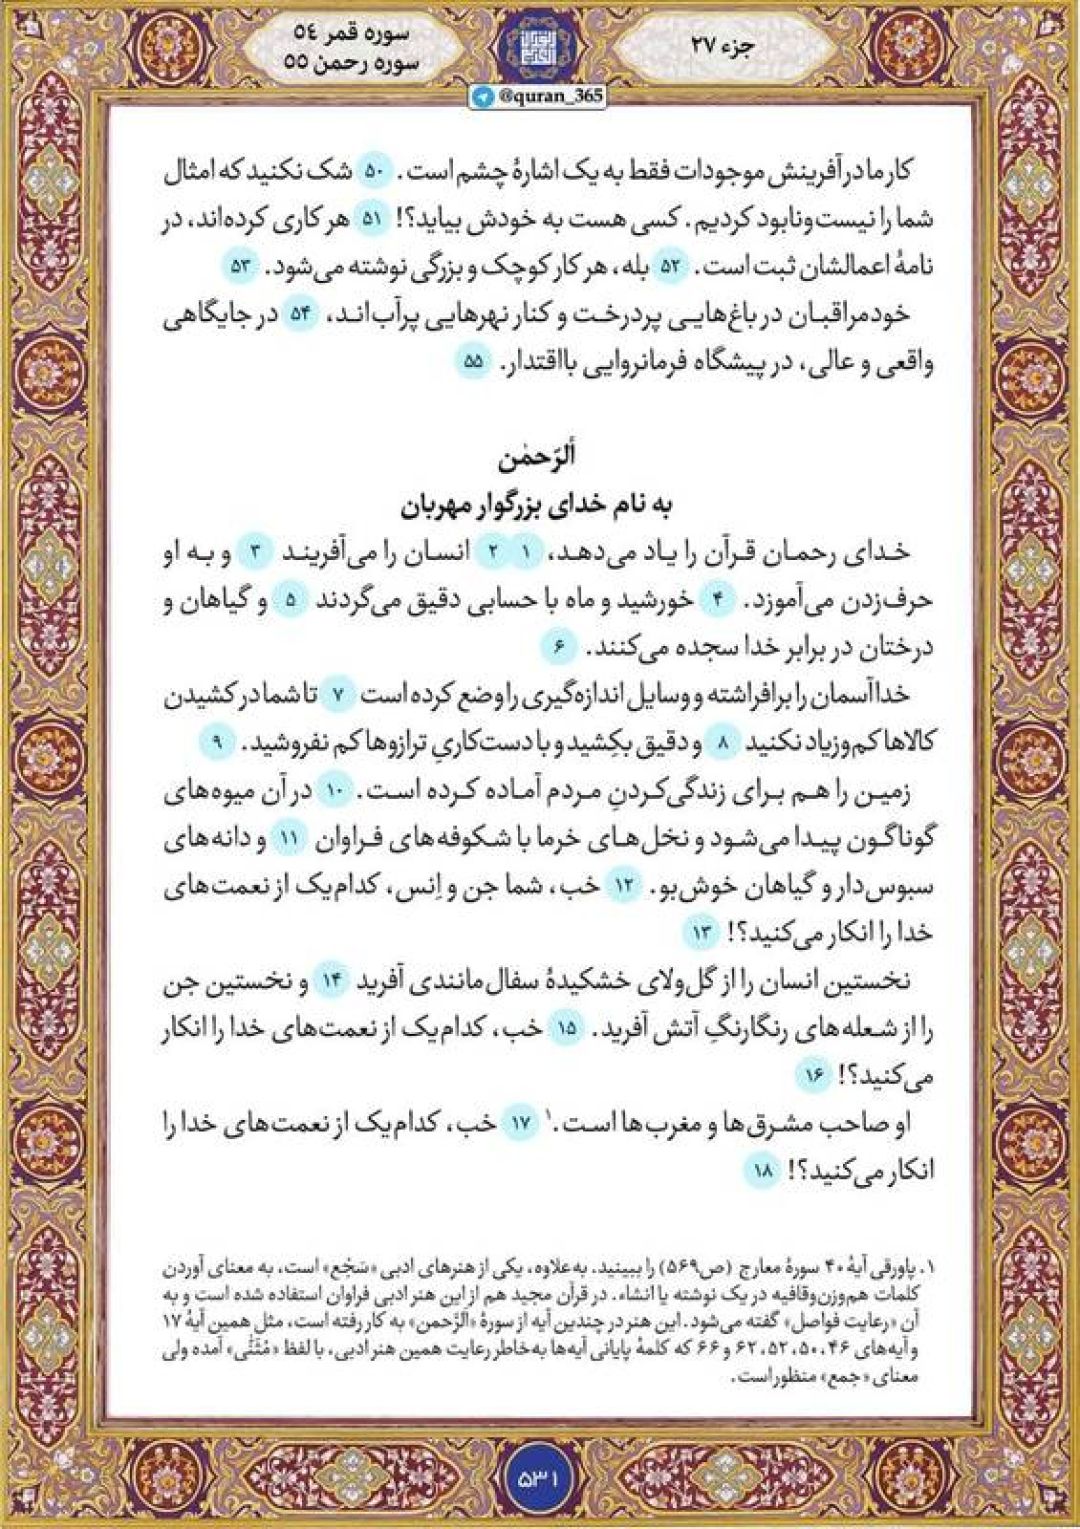 جزء ۲۷
سوره قمر ٥٤
سوره رحمن ٥٥
@quran_365
کار ما در آفرینش موجودات فقط به یک اشارهٔ چشم است. ۵۰ شک نکنید که امثال
شما را نیست‌ونابود کردیم. کسی هست به خودش بیاید؟! ۵۱ هر کاری کرده‌اند، در
نامهٔ اعمالشان ثبت است. ۵۲ بله، هر کار کوچک و بزرگی نوشته می‌شود. ۵۳
خودمراقبان در باغ‌هایی پردرخت و کنار نهرهایی پرآب‌اند، ۵۴ در جایگاهی
واقعی و عالی، در پیشگاه فرمانروایی بااقتدار. ۵۵
اَلرّحمٰن
به نام خدای بزرگوار مهربان
خدای رحمان قرآن را یاد می‌دهد، ۱ ۲ انسان را می‌آفریند ۳ و به او
حرف‌زدن می‌آموزد. ۴ خورشید و ماه با حسابی دقیق می‌گردند ۵ و گیاهان و
درختان در برابر خدا سجده می‌کنند. ۶
خدا آسمان را برافراشته و وسایل اندازه‌گیری را وضع کرده است ۷ تا شما در کشیدن
کالاها کم‌وزیاد نکنید ۸ و دقیق بکِشید و با دست‌کاریِ ترازوها کم نفروشید. ۹
زمین را هم برای زندگی‌کردنِ مردم آماده کرده است. ۱۰ در آن میوه‌های
گوناگون پیدا می‌شود و نخل‌های خرما با شکوفه‌های فراوان ۱۱ و دانه‌های
سبوس‌دار و گیاهان خوش‌بو. ۱۲ خب، شما جن و اِنس، کدام‌یک از نعمت‌های
خدا را انکار می‌کنید؟! ۱۳
نخستین انسان را از گل‌ولای خشکیدهٔ سفال‌مانندی آفرید ۱۴ و نخستین جن
را از شعله‌های رنگارنگِ آتش آفرید. ۱۵ خب، کدام‌یک از نعمت‌های خدا را انکار
می‌کنید؟! ۱۶
او صاحب مشرق‌ها و مغرب‌ها است.۱ ۱۷ خب، کدام‌یک از نعمت‌های خدا را
انکار می‌کنید؟! ۱۸
۱. پاورقی آیهٔ ۴۰ سورهٔ معارج (ص۵۶۹) را ببینید. به‌علاوه، یکی از هنرهای ادبی «سَجْع» است، به معنای آوردن
کلمات هم‌وزن‌وقافیه در یک نوشته یا انشاء. در قرآن مجید هم از این هنر ادبی فراوان استفاده شده است و به
آن «رعایت فواصل» گفته می‌شود. این هنر در چندین آیه از سورهٔ «اَلرَّحمن» به کار رفته است، مثل همین آیهٔ ۱۷
و آیه‌های ۴۶، ۵۰، ۵۲، ۶۲ و ۶۶ که کلمهٔ پایانی آیه‌ها به‌خاطر رعایت همین هنر ادبی، با لفظ «مُثَنّٰی» آمده ولی
معنای «جمع» منظور است.
۵۳۱